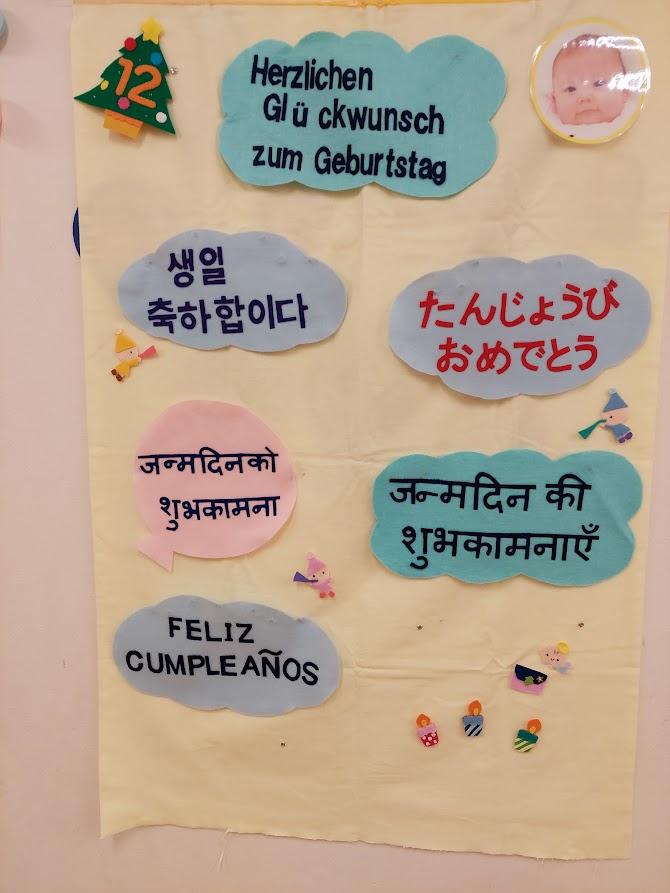 12
Herzlichen
Glückwunsch
zum Geburtstag
생일
축하합이다
たんじょうび
おめでとう
जन्मदिनको
शुभकामना
जन्मदिन की
शुभकामनाएँ
FELIZ
CUMPLEAÑOS